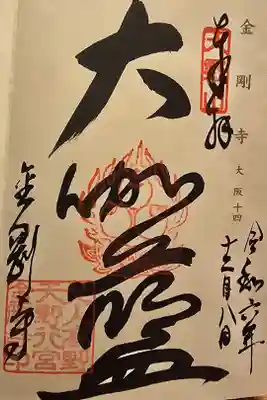 金剛寺 大阪十四
奉拝
令和六年
十二月八日
大伽藍
金剛寺
天野行宮